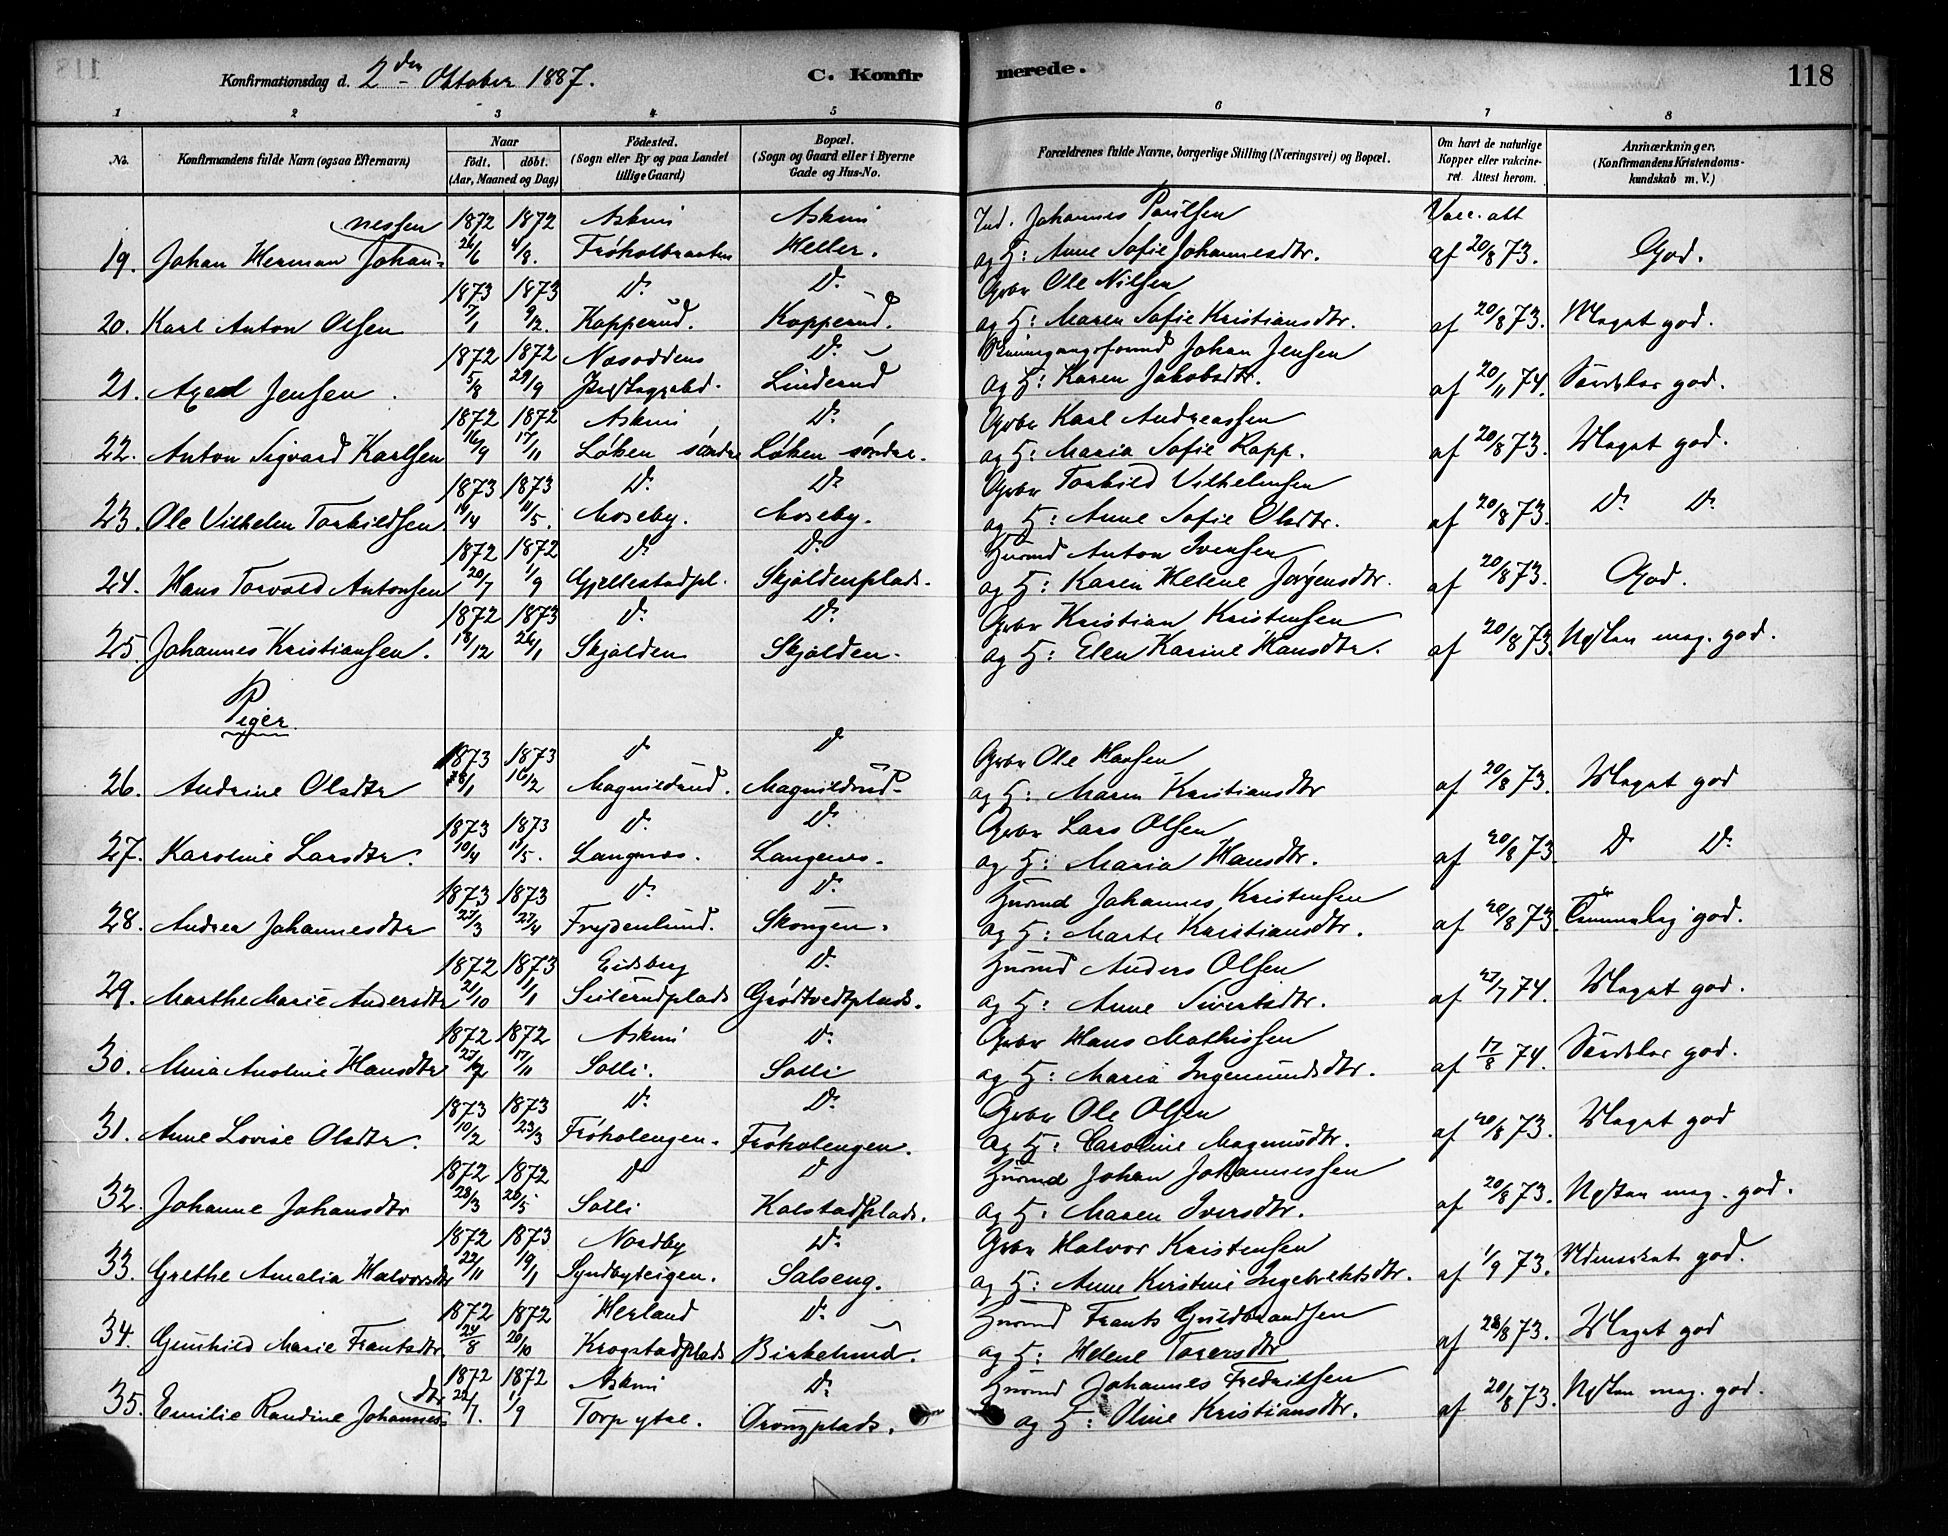 Konfirmationsdag d. 2den Oktober 1887. C. Konfirmerede. 118
1 2 3 4 5 6 7 8
No. Konfirmandens fulde Navn (ogsaa Efternavn) Naar født. døbt. (Aar, Maaned og Dag) Fødested. (Sogn eller By og paa Landet tillige Gaard) Bopæl. (Sogn og Gaard eller i Byerne Gade og Hus-No. Forældrenes fulde Navne, borgerlige Stilling (Næringsvei) og Bopæl. Om havt de naturlige Kopper eller vakcineret. Attest herom. Anmærkninger. (Konfirmandens Kristendomskundskab m. V.)
nessen 1872 1872 Askim Askim Ind. Johannes Paulsen Vacc. att
19. Johan Herman Johan- 26/6 4/8. Frøholtbraaten Heller. og H: Anne Sofie Johannesdtr. af 20/8 73. God.
1873 1873 Do. Do. Gbr Ole Nilsen
20. Karl Anton Olsen 7/1 9/2. Kopperud. Kopperud. og H: Maren Sofie Kristiansdtr. af 20/8 73. Meget god.
1872 1872 Næsoddens Do. Johan Jensen
21. Axel Jensen. 5/8 29/9 Præstegjeld. Linderud og H: Karen Jakobsdtr. af 20/11 74. Særdeles god.
1872 1872 Askim Do. Gbr Karl Andreassen
22. Anton Sigvard Karlsen 16/9 17/11 Løken søndre Løken søndre. og H: Maria Sofie Rapp. af 20/8 73. Meget god.
1873 1873 Do. Do. Gbr Torkild Vilhelmsen
23. Ole Vilhelm Torkildsen 14/4 11/5. Moseby. Moseby. og H: Anne Sofie Olsdtr. af 20/8 73. Do Do
1872 1872 Do. Do. Husmd Anton Ivensen
24. Hans Torvald Antonsen 20/7 1/9 Gjellestadpl. Skjoldenplads. og H: Karen Helene Jørgensdtr. af 20/8 73. God.
1872 1873 Do. Do. Gbr Kristian Kristensen
25. Johannes Kristiansen. 18/12 26/1 Skjolden Skjolden. og H: Elen Karine Hansdtr. af 20/8 73. Næsten meg. god.
Piger
1873 1873 Do Do Gbr Ole Hansen
26. Andrine Olsdtr 28/1 16/2 Magnildrud. Magnildrud. og H: Maren Kristiansdtr af 20/8 73. Meget god
1873 1873 Do. Do. Gbr Lars Olsen
27. Karoline Larsdtr. 10/4 11/5. Langnes. Langenes. og H: Maria Hansdtr. af 20/8 73. Do Do
1873 1873 Do. Do. Husmd Johannes Kristensen
28. Andrea Johannesdtr 27/3 27/4 Frydenlund. Skougen. og H: Marte Kristiansdtr. af 20/8 73. Temmelig god.
1872 1873 Eidsberg Do. Husmd Anders Olsen
29. Marthe Marie Andersdtr 21/10 1/1 Grødtvedtplads. og H: Anne Sivertsdtr. af 27/7 74. Meget god.
1872 1872 Askim Do. Gbr Hans Mathissen
30. Mina Anoline Hansdtr 17/11 Solli. Solli og H: Maria Ingemundsdtr. af 17/8 74. Særdeles god.
1873 1873 Do. Do. Gbr Ole Olsen
31. Anne Lovise Olsdtr. 10/2 23/3 Frøholengen. Frøholengen. og H: Caroline Magnusdtr. af 20/8 73. Meget god
1872 1872 Do Do Husmd Johan Johannessen
32. Johanne Johansdtr 28/3 26/5 Solli Kolstadplads. og H: Maren Iversdtr. af 20/8 73. Næsten meg. god.
1872 1873 Nordby Do. Gbr Halvor Kristensen
33. Grethe Amalia Halvorsdtr 22/11 19/1 Syndbyteigen. Solseng. og H: Anne Kirstine Ingebrektsdtr. af 1/9 73. Udmærket god.
1872 1872 Herland Do. Husmd Frants Guldbrandsen
34. Gunhild Marie Frantsdtr. 24/8 20/10 Krogstadplads Birkelund. og H: Helene Torersdtr af 28/8 73. Meget god
dtr 1872 1872 Askim Do. Husmd Johannes Fredriksen
35. Emilie Randine Johannes- 22/7. 1/9 Torp ytre. Orougplads. og H: Oline Kristiansdtr. af 20/8 73. Næsten meg. god.